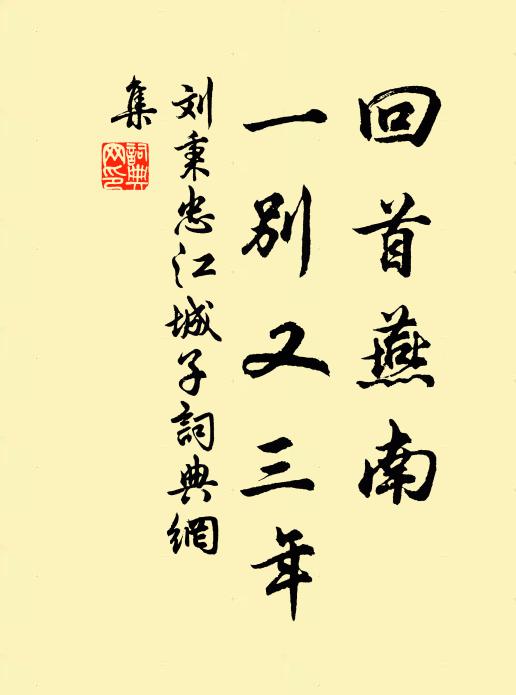 回首燕南
一别又三年
刘秉忠江城子詞典網
集
詞典
网印